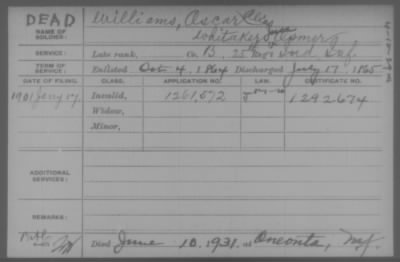 DEAD
NAME OF SOLDIER:
Williams, Oscar
Whitaker
SERVICE:
Late rank, Co. B, 25 Ind Inf.
TERM OF SERVICE:
Enlisted Oct 4, 1864 Discharged July 17, 1865
DATE OF FILING. CLASS. APPLICATION NO. LAW. CERTIFICATE NO.
1901 Jany 17, Invalid, 1261,572 1292674
Widow,
Minor,
ADDITIONAL SERVICES:
REMARKS:
Died June 10, 1931. at Oneonta, N.Y.